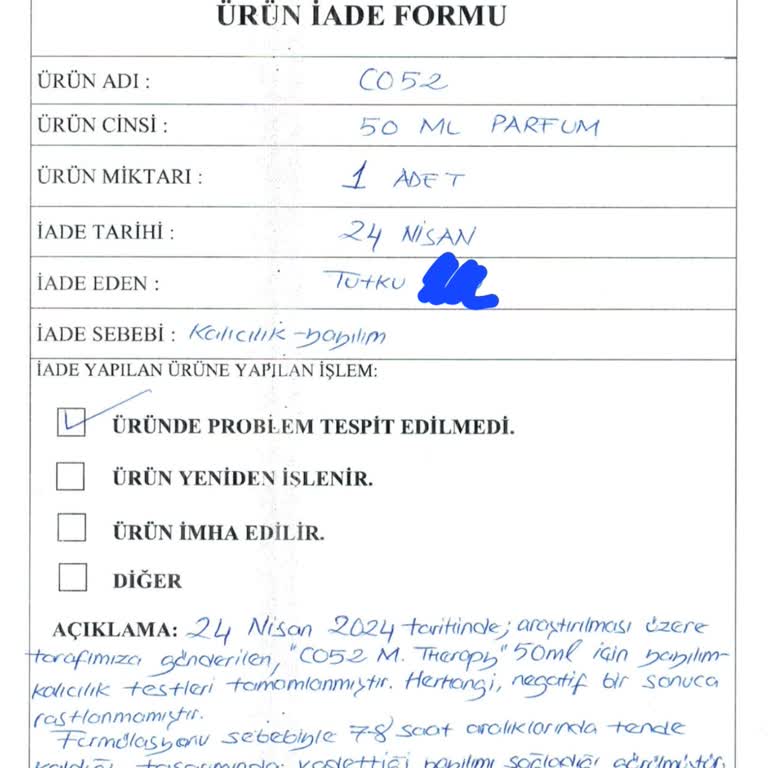 ÜRÜN İADE FORMU
ÜRÜN ADI : CO52
ÜRÜN CİNSİ : 50 ML PARFUM
ÜRÜN MİKTARI : 1 ADET
İADE TARİHİ : 24 NİSAN
İADE EDEN : TUTKU
İADE SEBEBİ : Kalıcılık-yayılım
İADE YAPILAN ÜRÜNE YAPILAN İŞLEM:
ÜRÜNDE PROBLEM TESPİT EDİLMEDİ.
ÜRÜN YENİDEN İŞLENİR.
ÜRÜN İMHA EDİLİR.
DİĞER
AÇIKLAMA: 24 Nisan 2024 tarihinde; araştırılması üzere
tarafımıza gönderilen, "CO52 M. Therapy" 50ml için yayılım-
kalıcılık testleri tamamlanmıştır. Herhangi, negatif bir sonuca
rastlanmamıştır.
Formülasyonu sebebiyle 7-8 saat aralıklarında tende
kaldığı, tasarımında; vadettiği yayılımı sağladığı görülmüştür.